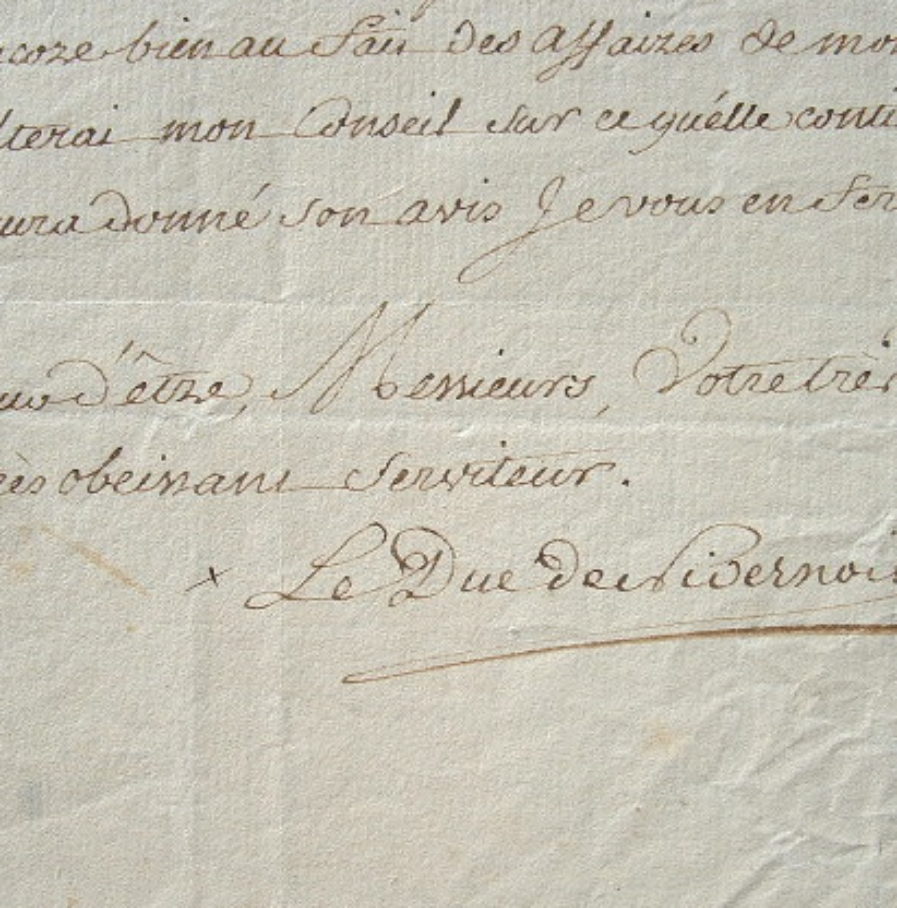 ncore bien au fait des affaires de mon
lterai mon Conseil sur ce qu'elle conti
aura donné son avis Je vous en fer
d'être, Messieurs, Votre très
rès obeissant serviteur.
x Le Duc de Nivernois